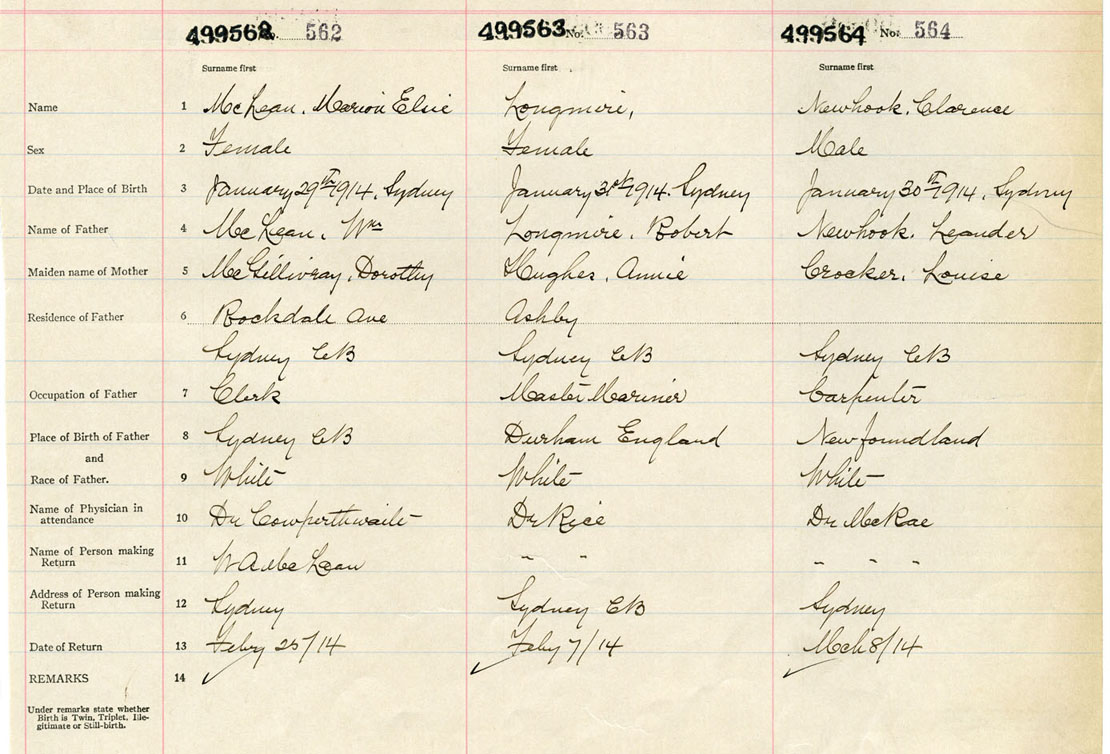 499562 No. 562 499563 No. 563 499564 No. 564
Surname first Surname first Surname first
Name 1 McLean, Marion Elsie Longmire, Newhook, Clarence
Sex 2 Female Female Male
Date and Place of Birth 3 January 29th 1914, Sydney January 31st 1914, Sydney January 30th 1914, Sydney
Name of Father 4 McLean, Wm Longmire, Robert Newhook, Leander
Maiden name of Mother 5 McGillivray, Dorothy Hughes, Annie Crocker, Louise
Residence of Father 6 Rockdale Ave Ashby
Sydney CB Sydney CB Sydney CB
Occupation of Father 7 Clerk Master Mariner Carpenter
Place of Birth of Father 8 Sydney CB Durham England Newfoundland
and
Race of Father. 9 White White White
Name of Physician in
attendance 10 Dr Cowperthwaite Dr Rice Dr McRae
Name of Person making
Return 11 W A McLean " " " " "
Address of Person making
Return 12 Sydney Sydney CB Sydney
Date of Return 13 Febry 25/14 Feby 7/14 Mch 8/14
REMARKS 14
Under remarks state whether
Birth is Twin, Triplet, Ille-
gitimate or Still-birth.